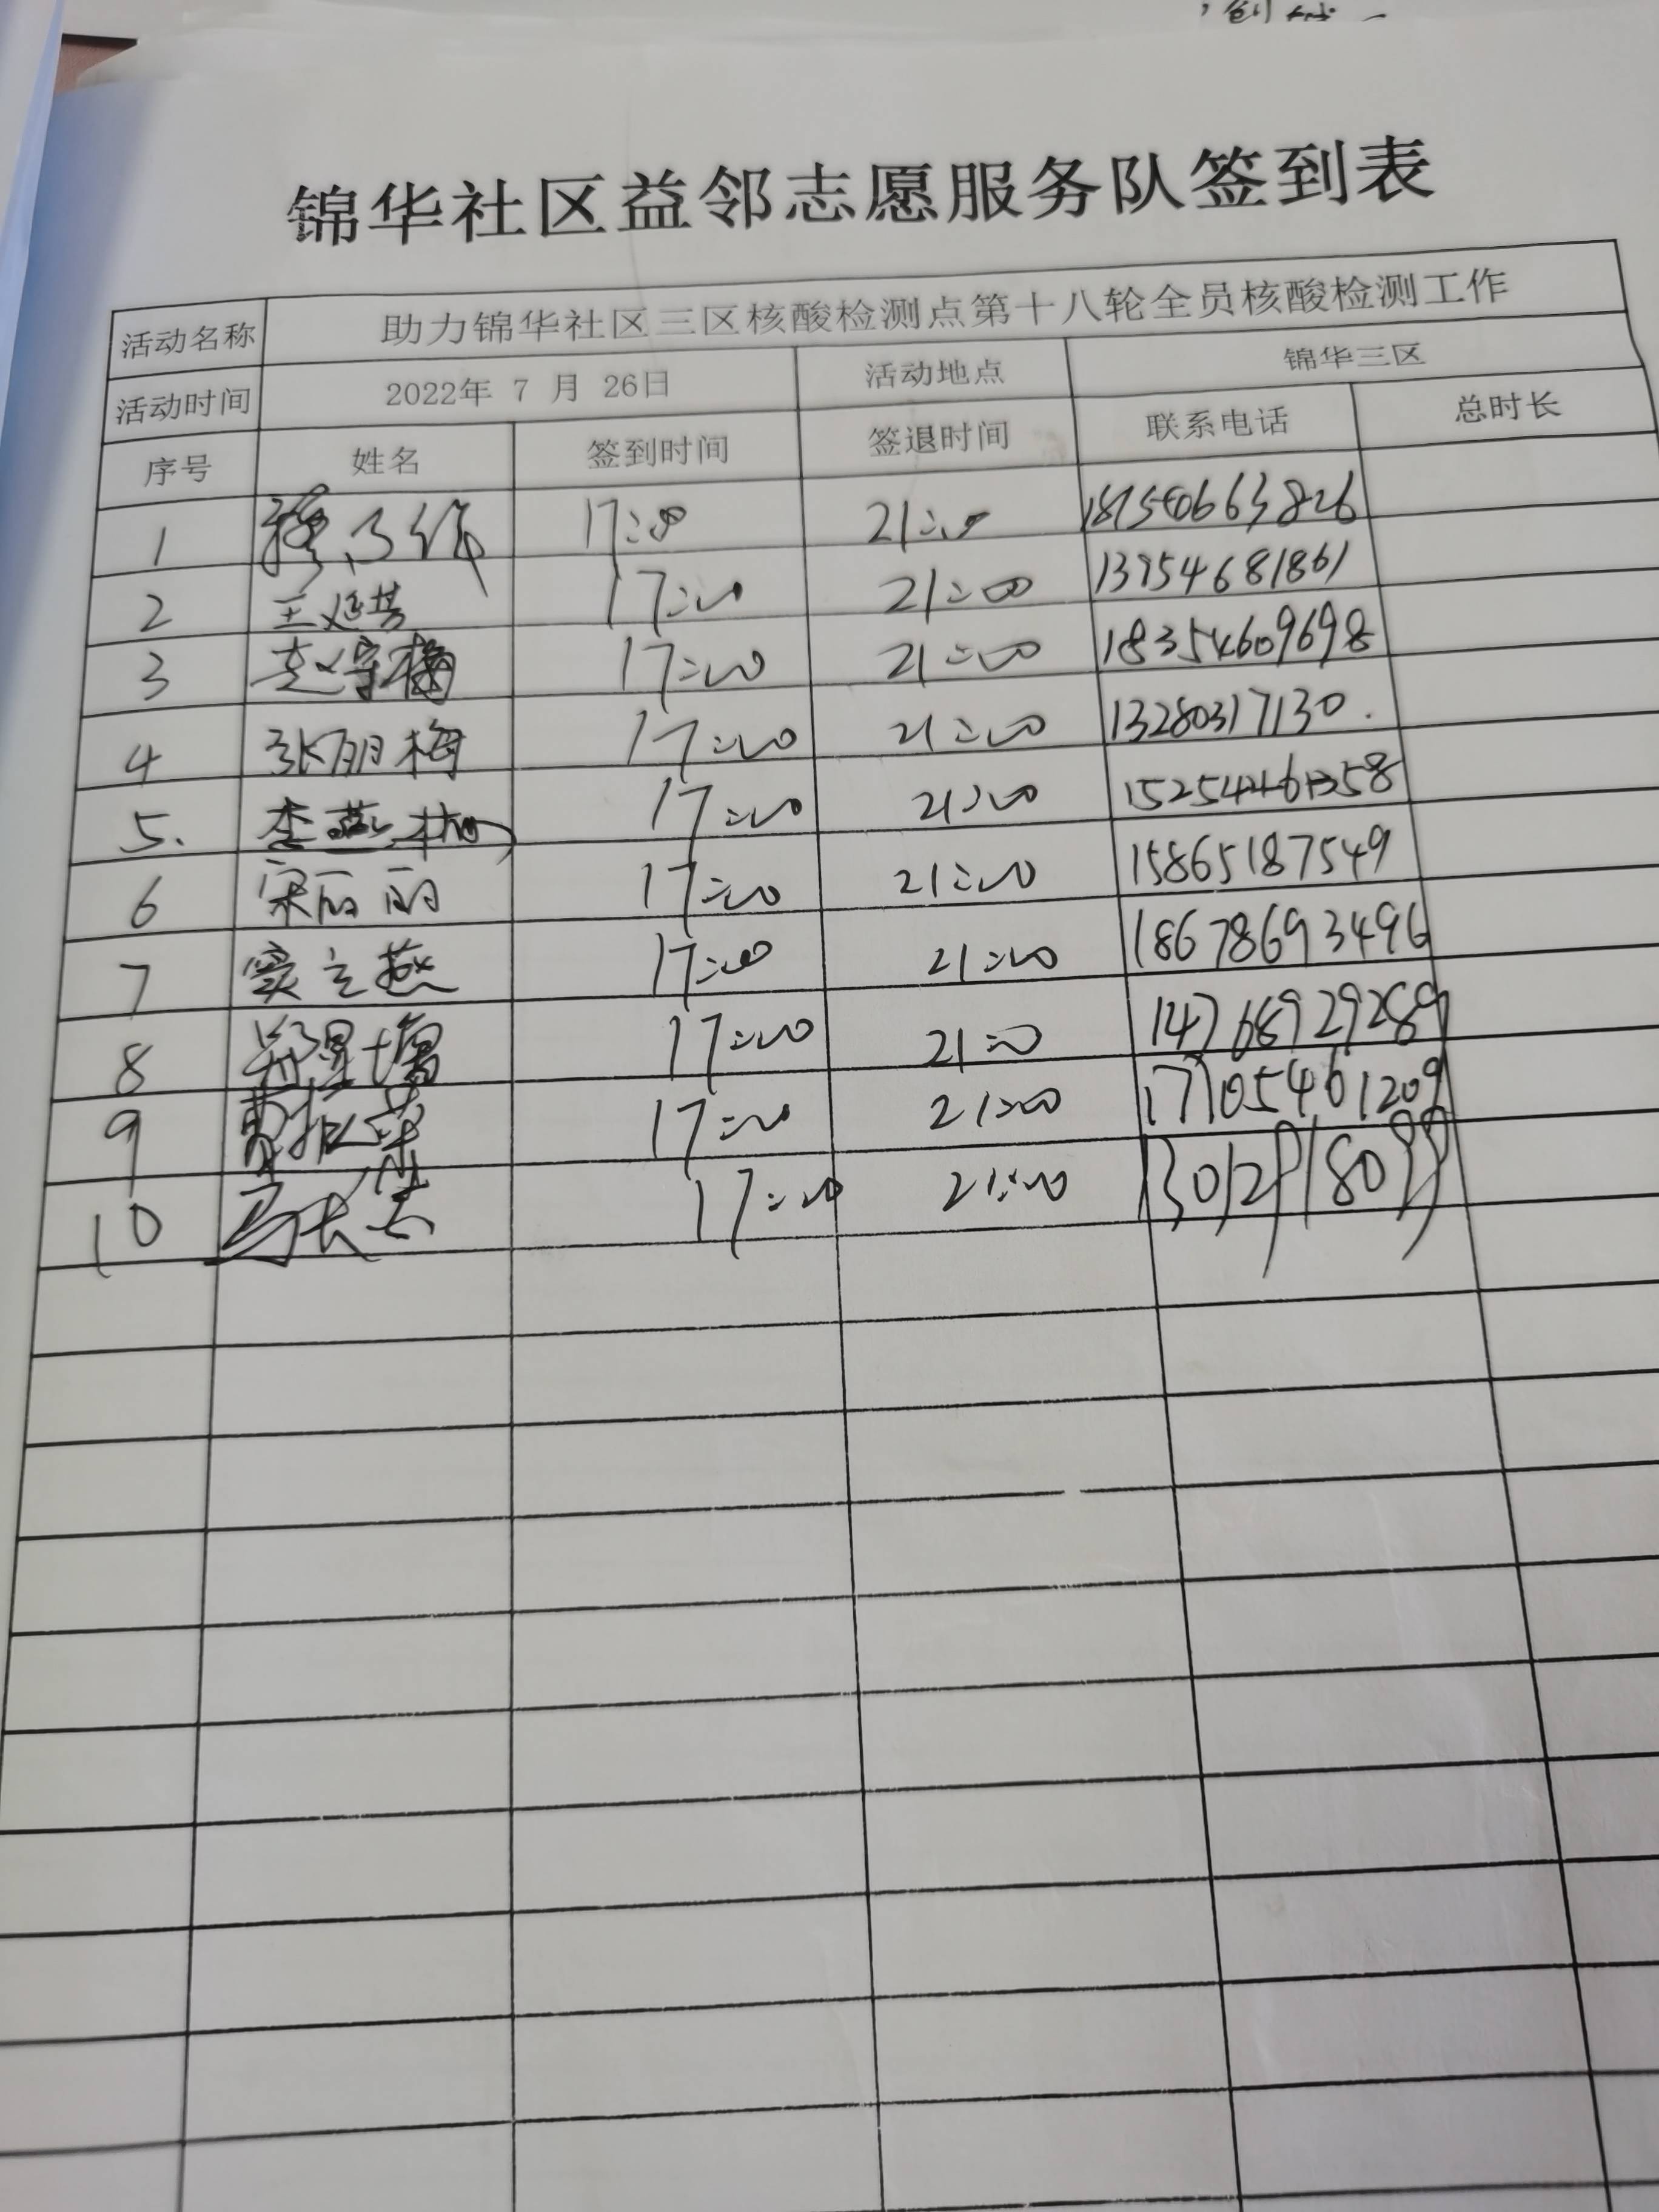 锦华社区益邻志愿服务队签到表
活动名称 助力锦华社区三区核酸检测点第十八轮全员核酸检测工作
活动时间 2022年 7 月 26日 活动地点 锦华三区
序号 姓名 签到时间 签退时间 联系电话 总时长
1 17:00 21:00
2 王延芳 17:00 21:00 13954681861
3 赵宝梅 17:00 21:00 18354609698
4 张丽梅 17:00 21:00 13280317130.
5. 李燕梅 17:00 21:00
6 宋丽丽 17:00 21:00 15865187549
7 窦立燕 17:00 21:00 18678693496
8 17:00 21:00 14768929289
9 曹振荣 17:00 21:00 17710546 1209
10 马长 17:00 21:00